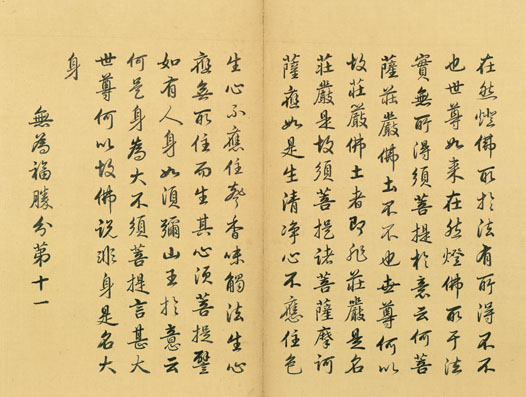 在然燈佛所於法有所得不不
也世尊如来在然燈佛所于法
實無所得須菩提於意云何菩
薩莊嚴佛土不不也世尊何以
故莊嚴佛土者即非莊嚴是名
莊嚴是故須菩提諸菩薩摩訶
薩應如是生清净心不應住色
生心不應住聲香味觸法生心
應無所住而生其心須菩提譬
如有人身如須彌山王於意云
何是身為大不須菩提言甚大
世尊何以故佛説非身是名大
身
無為福勝分第十一